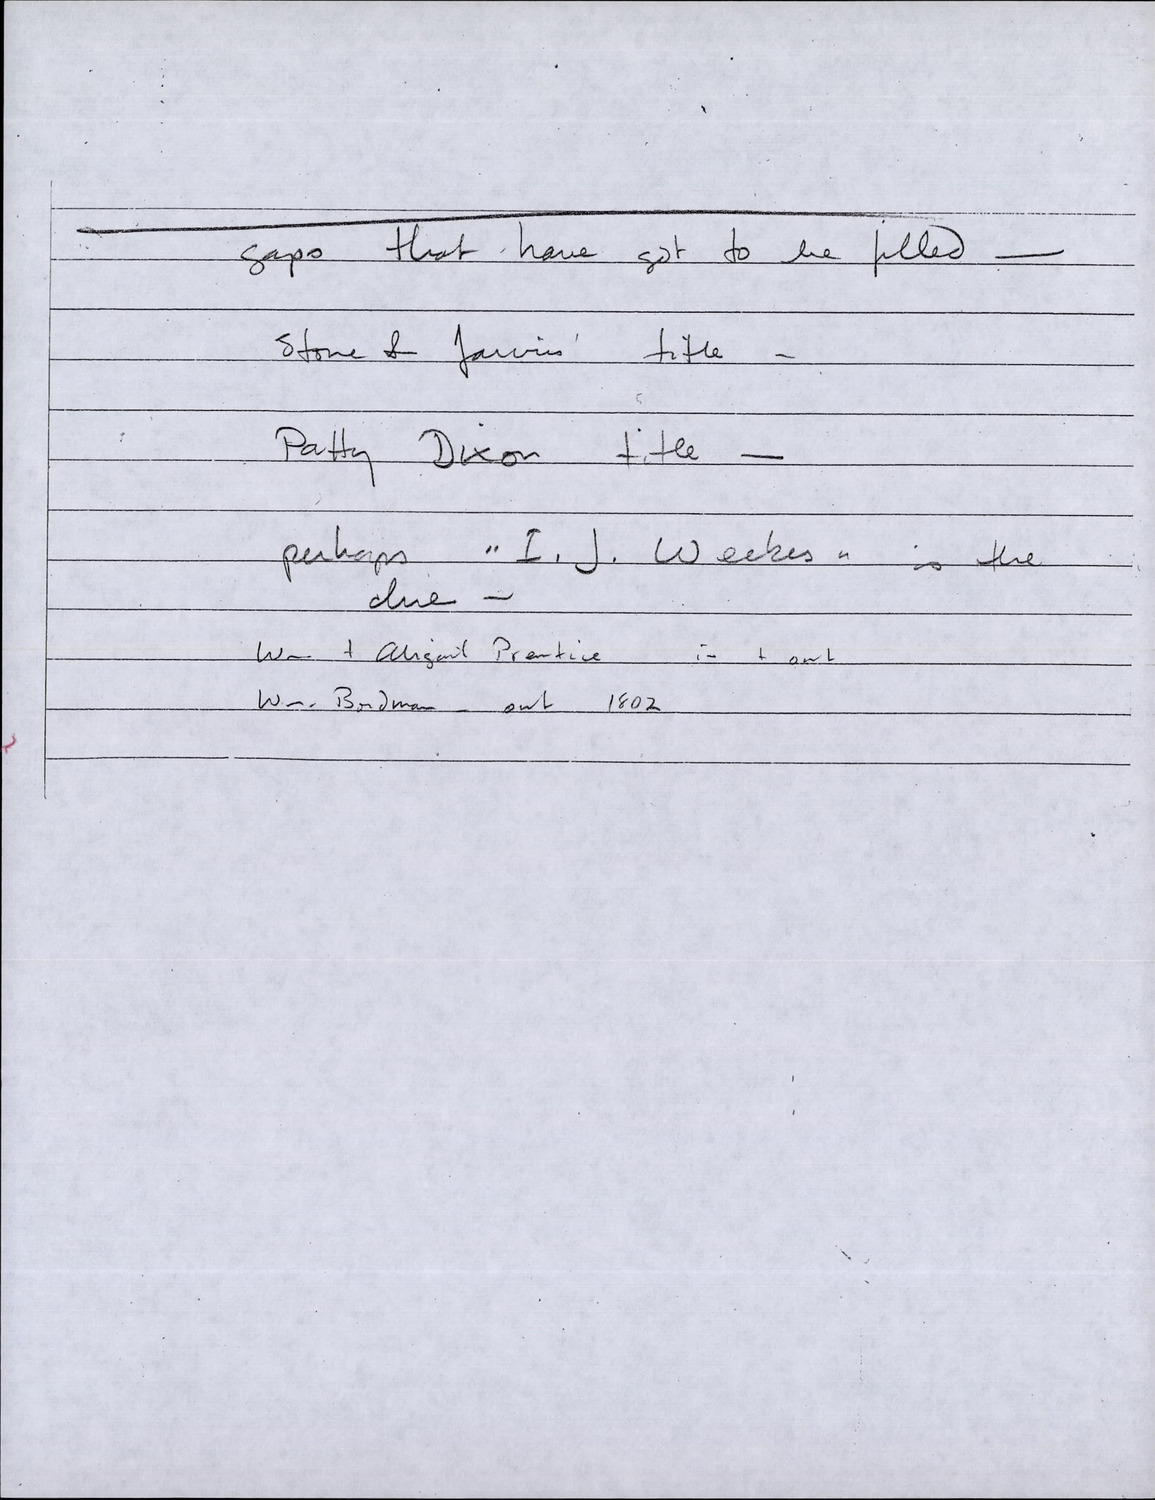 gaps that have got to be filled —
Stone & Jarvis' title -
Patty Dixon title —
perhaps "I. J. Weekes" is the
clue -
Wm + Abigail Prentice in + out
Wm. Bordman - out 1802